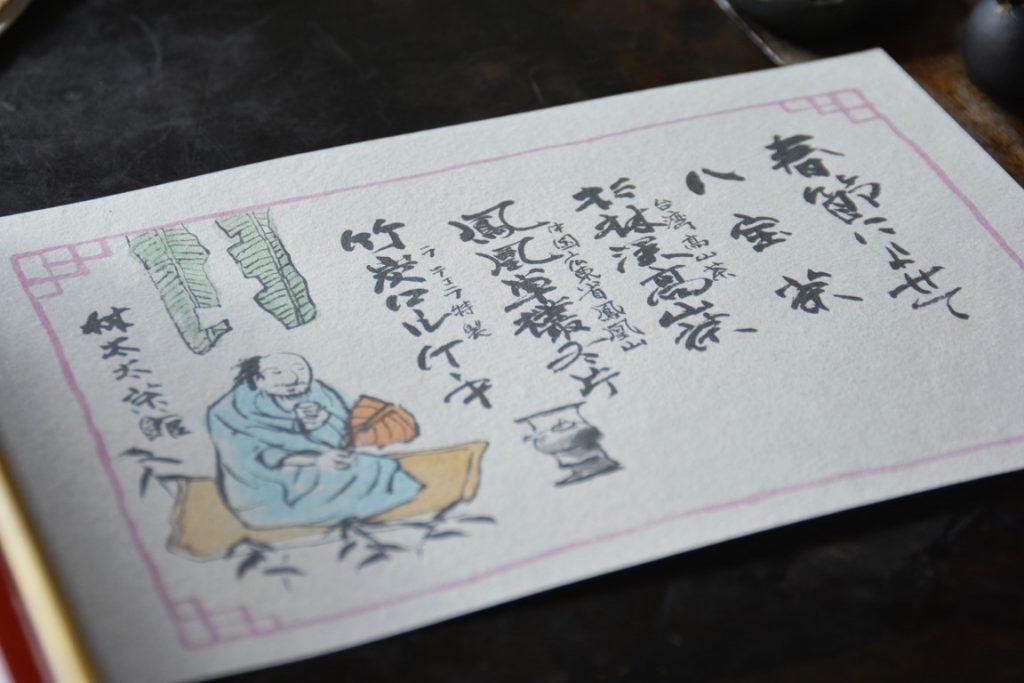 春節によせて
八宝茶
台湾高山茶
杉林渓高山茶
中国広東省鳳凰山
鳳凰単欉冬片
特製
竹炭ロールケーキ
林太太茶館